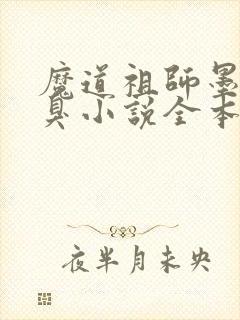 魔道祖師墨
臭小説全本
夜半月未央